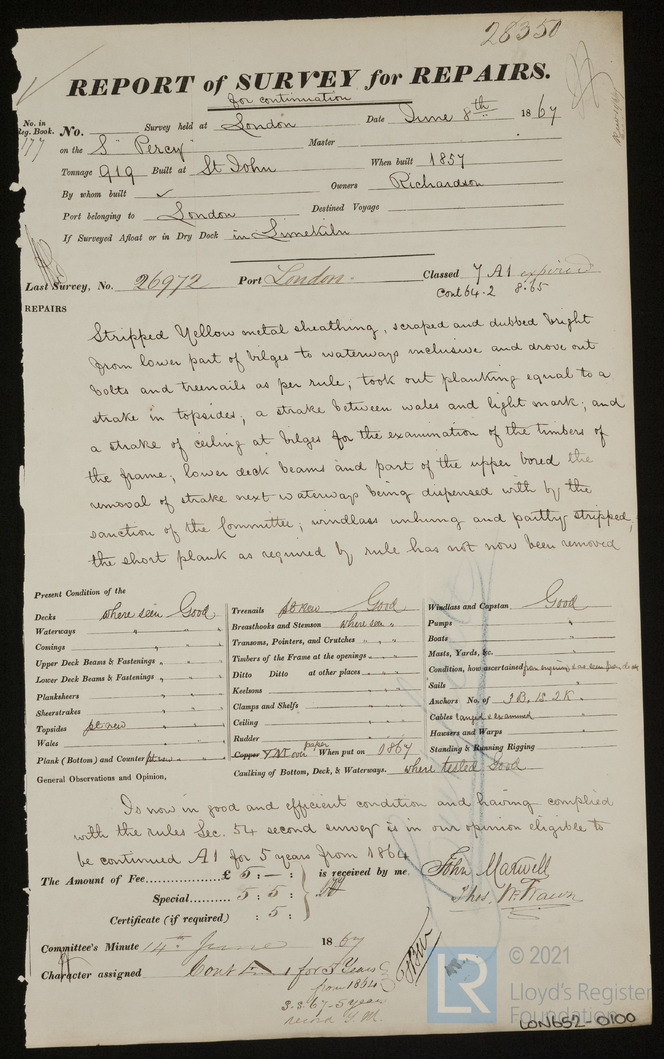 28350
REPORT of SURVEY for REPAIRS.
for continuation
No. in Reg. Book. No. Survey held at London Date June 8th 1867
177 on the S "Percy" Master
Tonnage 919 Built at St John When built 1857
By whom built ✓ Owners Richardson
Port belonging to London Destined Voyage
If Surveyed Afloat or in Dry Dock in Limekiln
Last Survey, No. 26972 Port London. Classed 7 A1 expired
Cont 64.2 8.65
REPAIRS
Stripped Yellow metal sheathing, scraped and dubbed bright
from lower part of bilges to waterways inclusive and drove out
bolts and treenails as per rule; took out planking equal to a
strake in topsides; a strake between wales and light mark; and
a strake of ceiling at bilges for the examination of the timbers of
the frame; lower deck beams and part of the upper bored the
removal of strake next waterways being dispensed with by the
sanction of the Committee; windlass unhung and partly stripped,
the short plank as required by rule has not now been removed
Present Condition of the
Decks where seen Good
Waterways " " "
Comings " " "
Upper Deck Beams & Fastenings " " "
Lower Deck Beams & Fastenings " " "
Planksheers " " "
Sheerstrakes " " "
Topsides pt new "
Wales "
Plank (Bottom) and Counter pt new "
General Observations and Opinion,
Treenails pt new Good
Breasthooks and Stemson where seen "
Transoms, Pointers, and Crutches " " "
Timbers of the Frame at the openings " " "
Ditto Ditto at other places " " "
Keelsons " " "
Clamps and Shelfs " " "
Ceiling " " "
Rudder " " "
Copper Y.M. over paper When put on 1867
Caulking of Bottom, Deck, & Waterways. where tested Good
Windlass and Capstan Good
Pumps "
Boats "
Masts, Yards, &c. "
Condition, how ascertained from enquiry & as seen from deck
Sails "
Anchors No. of 3 B, 1 S 2 K.
Cables ranged & examined
Hawsers and Warps "
Standing & Running Rigging "
Is now in good and efficient condition and having complied
with the rules Sec. 54 second survey is in our opinion eligible to
be continued A1 for 5 years from 1864
The Amount of Fee £ 5 : — : is received by me, John Maxwell
Special 5 : 5 :
Certificate (if required) : 5 :
Committee's Minute 14th June 1867
Character assigned Cont A 1 for 5 Years
from 1864
3.3.67-5 years
© 2021
LR Lloyd's Register
Foundation
LON652-0100